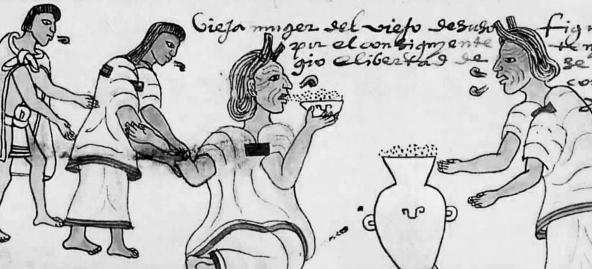 Vieja muger del viejo de suso
por el consiguiente
gio e libertad de
fig
te n
se
co